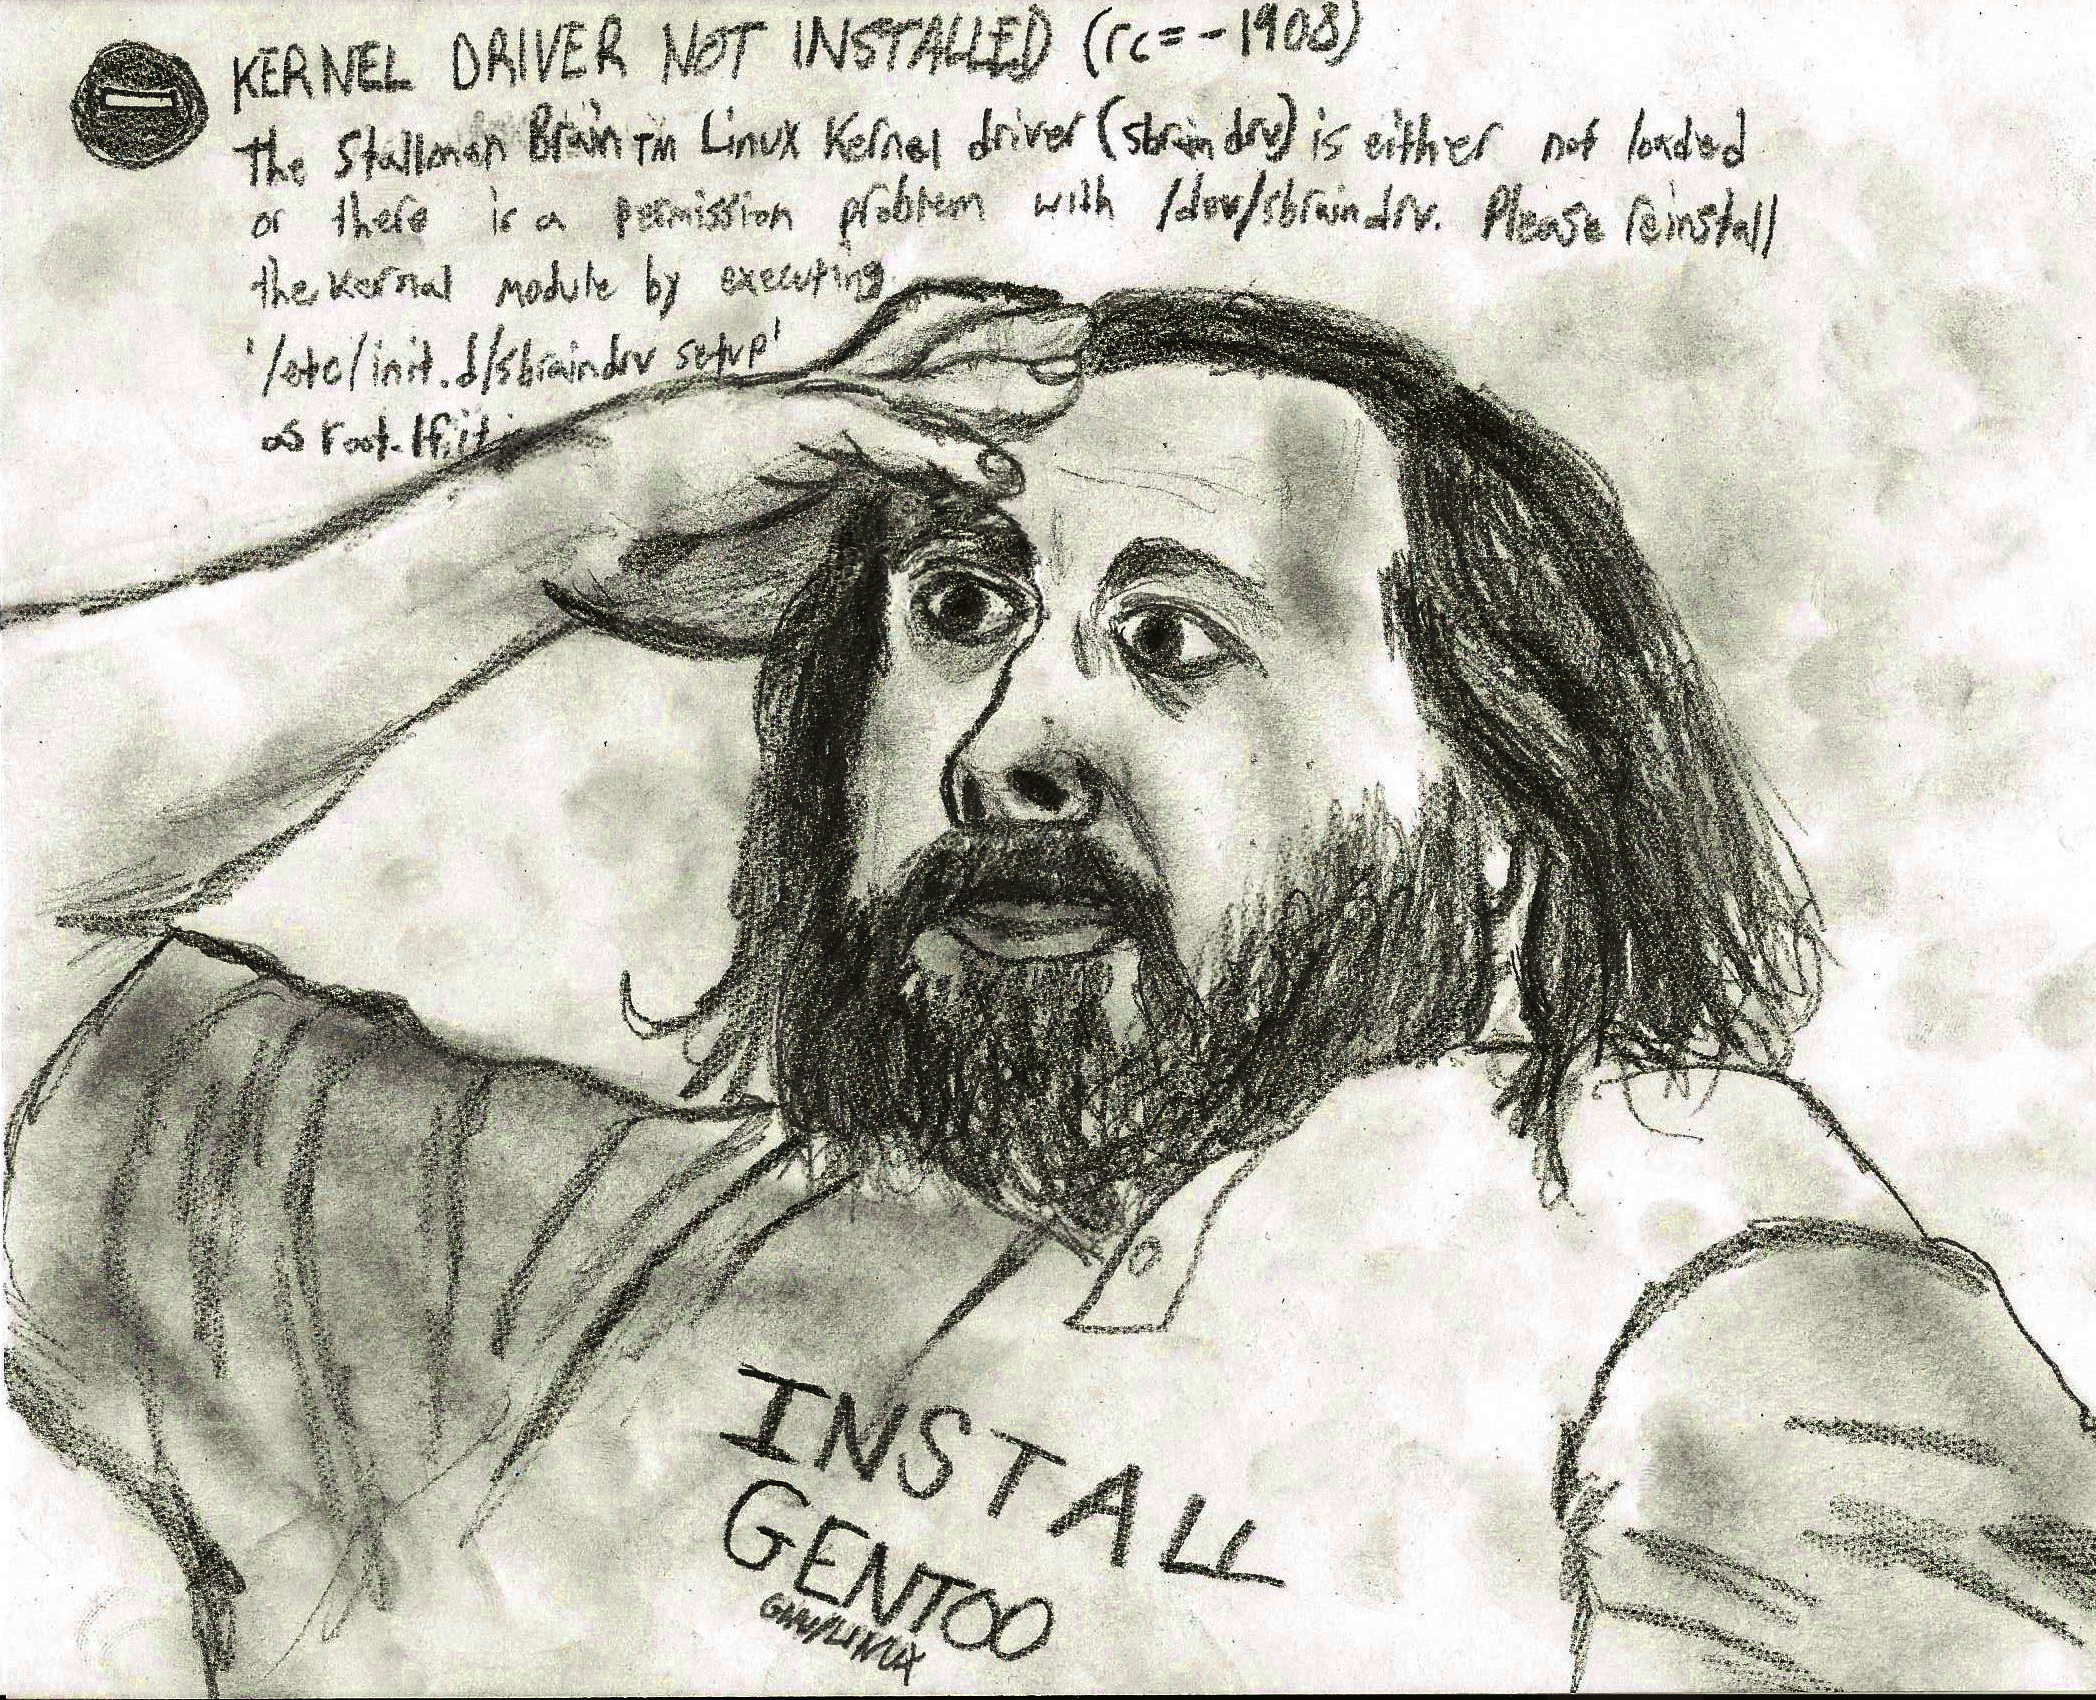 KERNEL DRIVER NOT INSTALLED (rc=-1908)
the Stallman Brain TM Linux Kernel driver (sbraindrv) is either not loaded
or there is a permission problem with /dev/sbraindrv. Please reinstall
the kernal module by executing
'/etc/init.d/sbraindrv setup'
as root. If it
INSTALL
GENTOO
GNU/LINUX